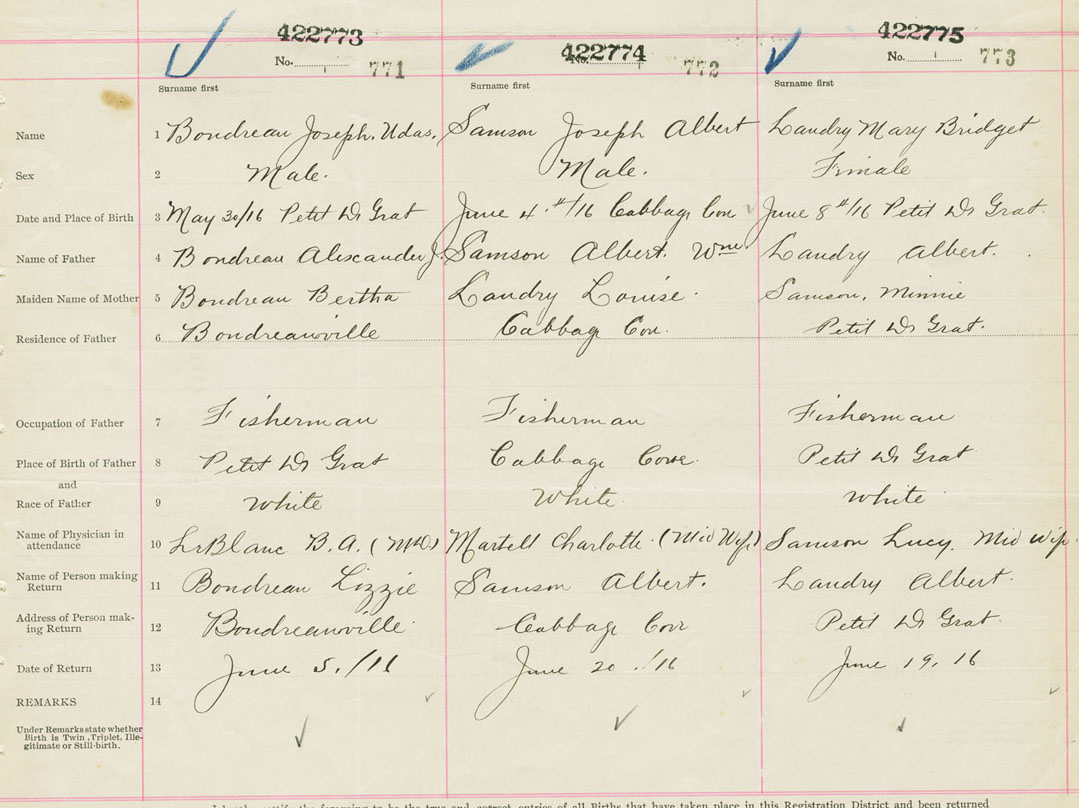 422773 422774 422775
No. 771 No. 772 No. 773
Surname first Surname first Surname first
Name 1 Boudreau Joseph. Udas. Samson Joseph Albert Landry Mary Bridget
Sex 2 Male. Male. Female
Date and Place of Birth 3 May 30/16 Petit De Grat June 4th/16 Cabbage Cove June 8th/16 Petit De Grat.
Name of Father 4 Boudreau Alexander J. Samson Albert. Wm Landry Albert.
Maiden Name of Mother 5 Boudreau Bertha Landry Louise. Samson, Minnie
Residence of Father 6 Boudreauville Cabbage Cove. Petit De Grat.
Occupation of Father 7 Fisherman Fisherman Fisherman
Place of Birth of Father 8 Petit De Grat Cabbage Cove. Petit De Grat
and
Race of Father 9 White White. White
Name of Physician in
attendance 10 LeBlanc B. A. (MD) Martell Charlotte. (Mid Wife) Samson Lucy. Mid Wife
Name of Person making
Return 11 Boudreau Lizzie Samson Albert. Landry Albert.
Address of Person mak-
ing Return 12 Boudreauville Cabbage Cove Petit De Grat.
Date of Return 13 June 5./16 June 20./16 June 19. 16
REMARKS 14
Under Remarks state whether
Birth is Twin, Triplet, Ille-
gitimate or Still-birth.
the foregoing to be the true and correct entries of all Births that have taken place in this Registration District and been returned